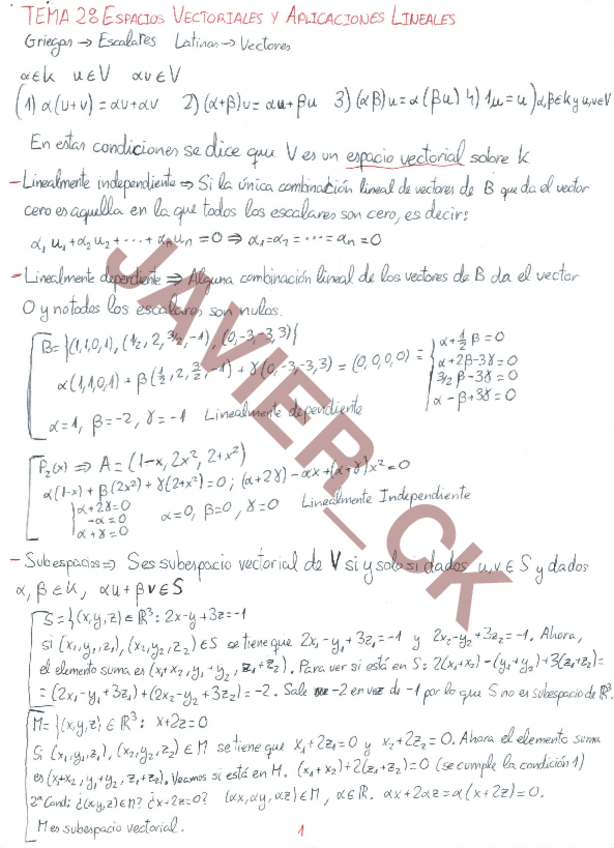 TEMA 28 ESPACIOS VECTORIALES Y APLICACIONES LINEALES
Griegas → Escalares Latinas → Vectores
α∈k u∈V αu∈V
(1) α(u+v) = αu+αv 2) (α+β)u = αu+βu 3) (αβ)u = α(βu) 4) 1u = u) α,β∈k y u,v∈V
En estas condiciones se dice que V es un espacio vectorial sobre k
- Linealmente independiente ⇒ Si la única combinación lineal de vectores de B que da el vector
cero es aquella en la que todos los escalares son cero, es decir:
α₁u₁+α₂u₂+...+αₙuₙ = 0 ⇒ α₁=α₂=...=αₙ=0
- Linealmente dependiente ⇒ Alguna combinación lineal de los vectores de B da el vector
0 y no todos los escalares son nulos.
B={(1,1,0,1), (1/2, 2, 3/2, -1), (0,-3,-3,3)}
α(1,1,0,1) + β(1/2, 2, 3/2, -1) + γ(0,-3,-3,3) = (0,0,0,0) = { α+1/2 β = 0
α+2β-3γ = 0
3/2 β-3γ = 0
α-β+3γ = 0
α=1, β=-2, γ=-1 Linealmente dependiente
P₂(x) ⇒ A = (1-x, 2x², 2+x²)
α(1-x) + β(2x²) + γ(2+x²) = 0; (α+2γ) - αx + (α+γ)x² = 0
{ α+2γ=0
-α=0
α+γ=0
α=0, β=0, γ=0 Linealmente Independiente
- Subespacios ⇒ S es subespacio vectorial de V si y solo si dados u,v∈S y dados
α,β∈k, αu+βv∈S
S={(x,y,z)∈ℝ³: 2x-y+3z=-1
si (x₁,y₁,z₁), (x₂,y₂,z₂)∈S se tiene que 2x₁-y₁+3z₁=-1 y 2x₂-y₂+3z₂=-1. Ahora,
el elemento suma es (x₁+x₂, y₁+y₂, z₁+z₂). Para ver si está en S: 2(x₁+x₂)-(y₁+y₂)+3(z₁+z₂)=
=(2x₁-y₁+3z₁)+(2x₂-y₂+3z₂)=-2. Sale -2 en vez de -1 por lo que S no es subespacio de ℝ³.
M={(x,y,z)∈ℝ³: x+2z=0
Si (x₁,y₁,z₁), (x₂,y₂,z₂)∈M se tiene que x₁+2z₁=0 y x₂+2z₂=0. Ahora el elemento suma
es (x₁+x₂, y₁+y₂, z₁+z₂). Veamos si está en M. (x₁+x₂)+2(z₁+z₂)=0 (se cumple la condición 1)
2ª Cond: ¿(x,y,z)∈M? ¿x+2z=0? (αx,αy,αz)∈M, α∈ℝ. αx+2αz=α(x+2z)=0.
M es subespacio vectorial.
1
JAVIER_CK